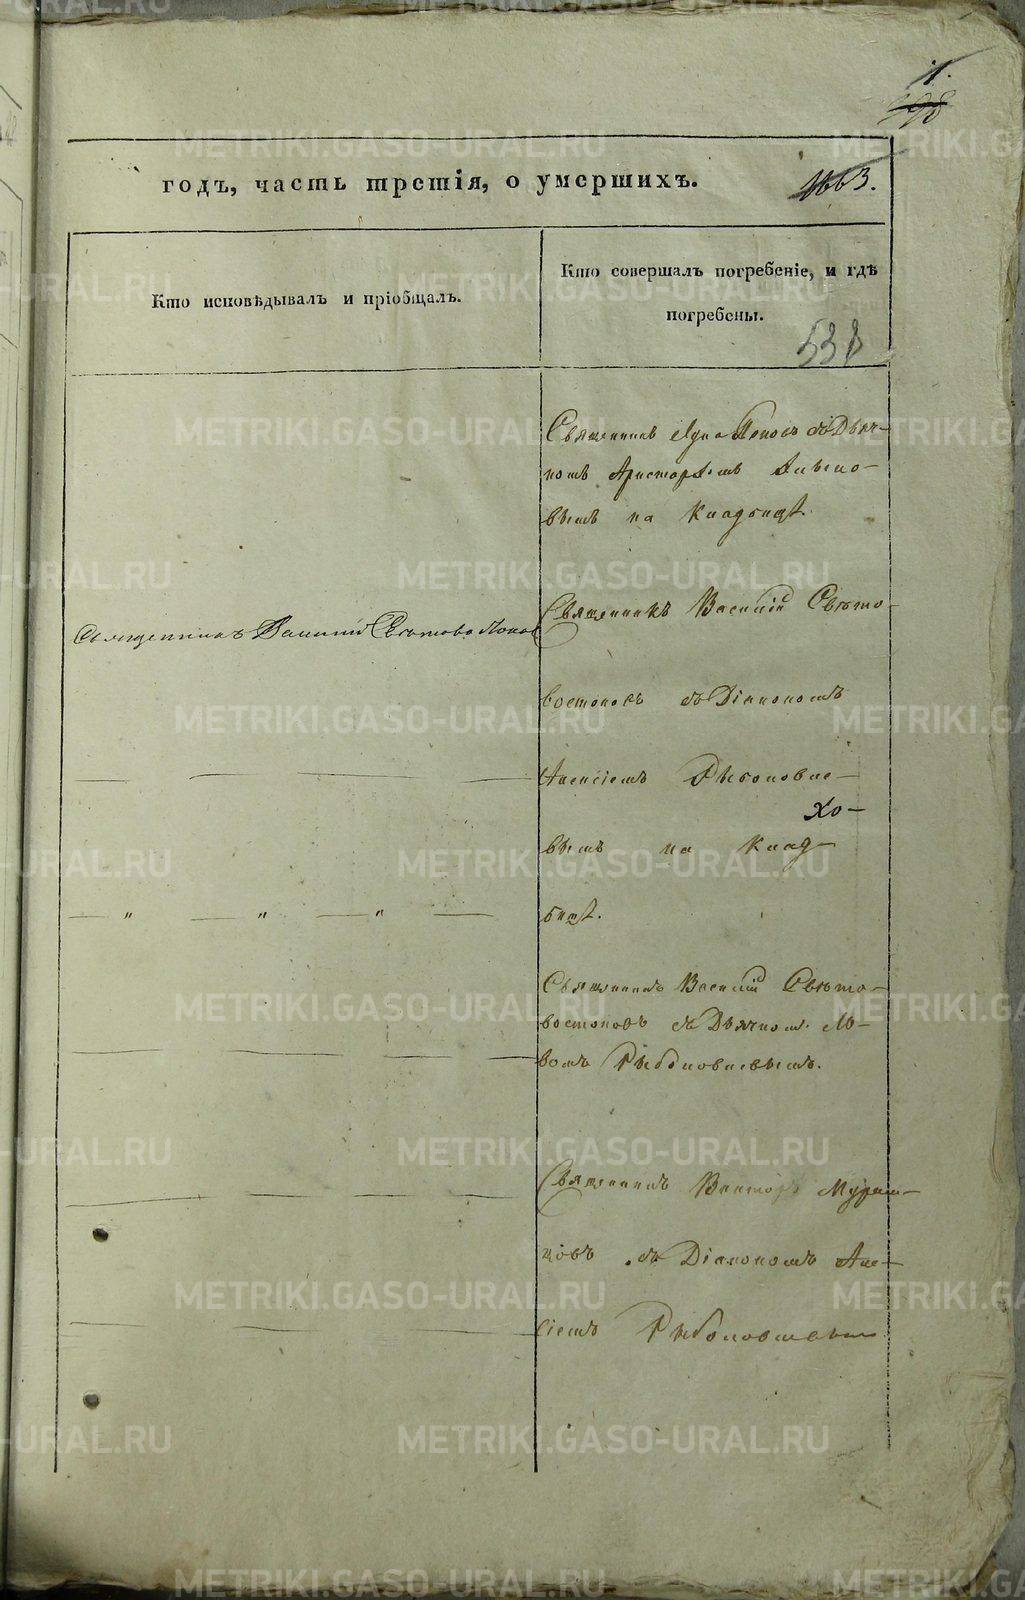 1.
1663.
годъ, часть третія, о умершихъ.
Кто исповѣдывалъ и пріобщалъ.
Кто совершалъ погребеніе, и гдѣ
погребены.
538
Священникъ Попов съ Дьяч-
комъ Аристархомъ
вымъ на Кладбищѣ.
Священникъ Василій Свѣтовостоков
Священникъ Василій Свѣто-
востоковъ съ Діакономъ
Алексіемъ Рыболовле-
Хо-
вымъ на Клад-
бищѣ.
Священникъ Василій Свѣто-
востоковъ съ Дьячком Ль-
вомъ Рыболовлевымъ.
Священникъ Викторъ Мурзин-
цовъ съ Діакономъ Алек-
сіемъ Рыболовлевым
METRIKI.GASO-URAL.RU